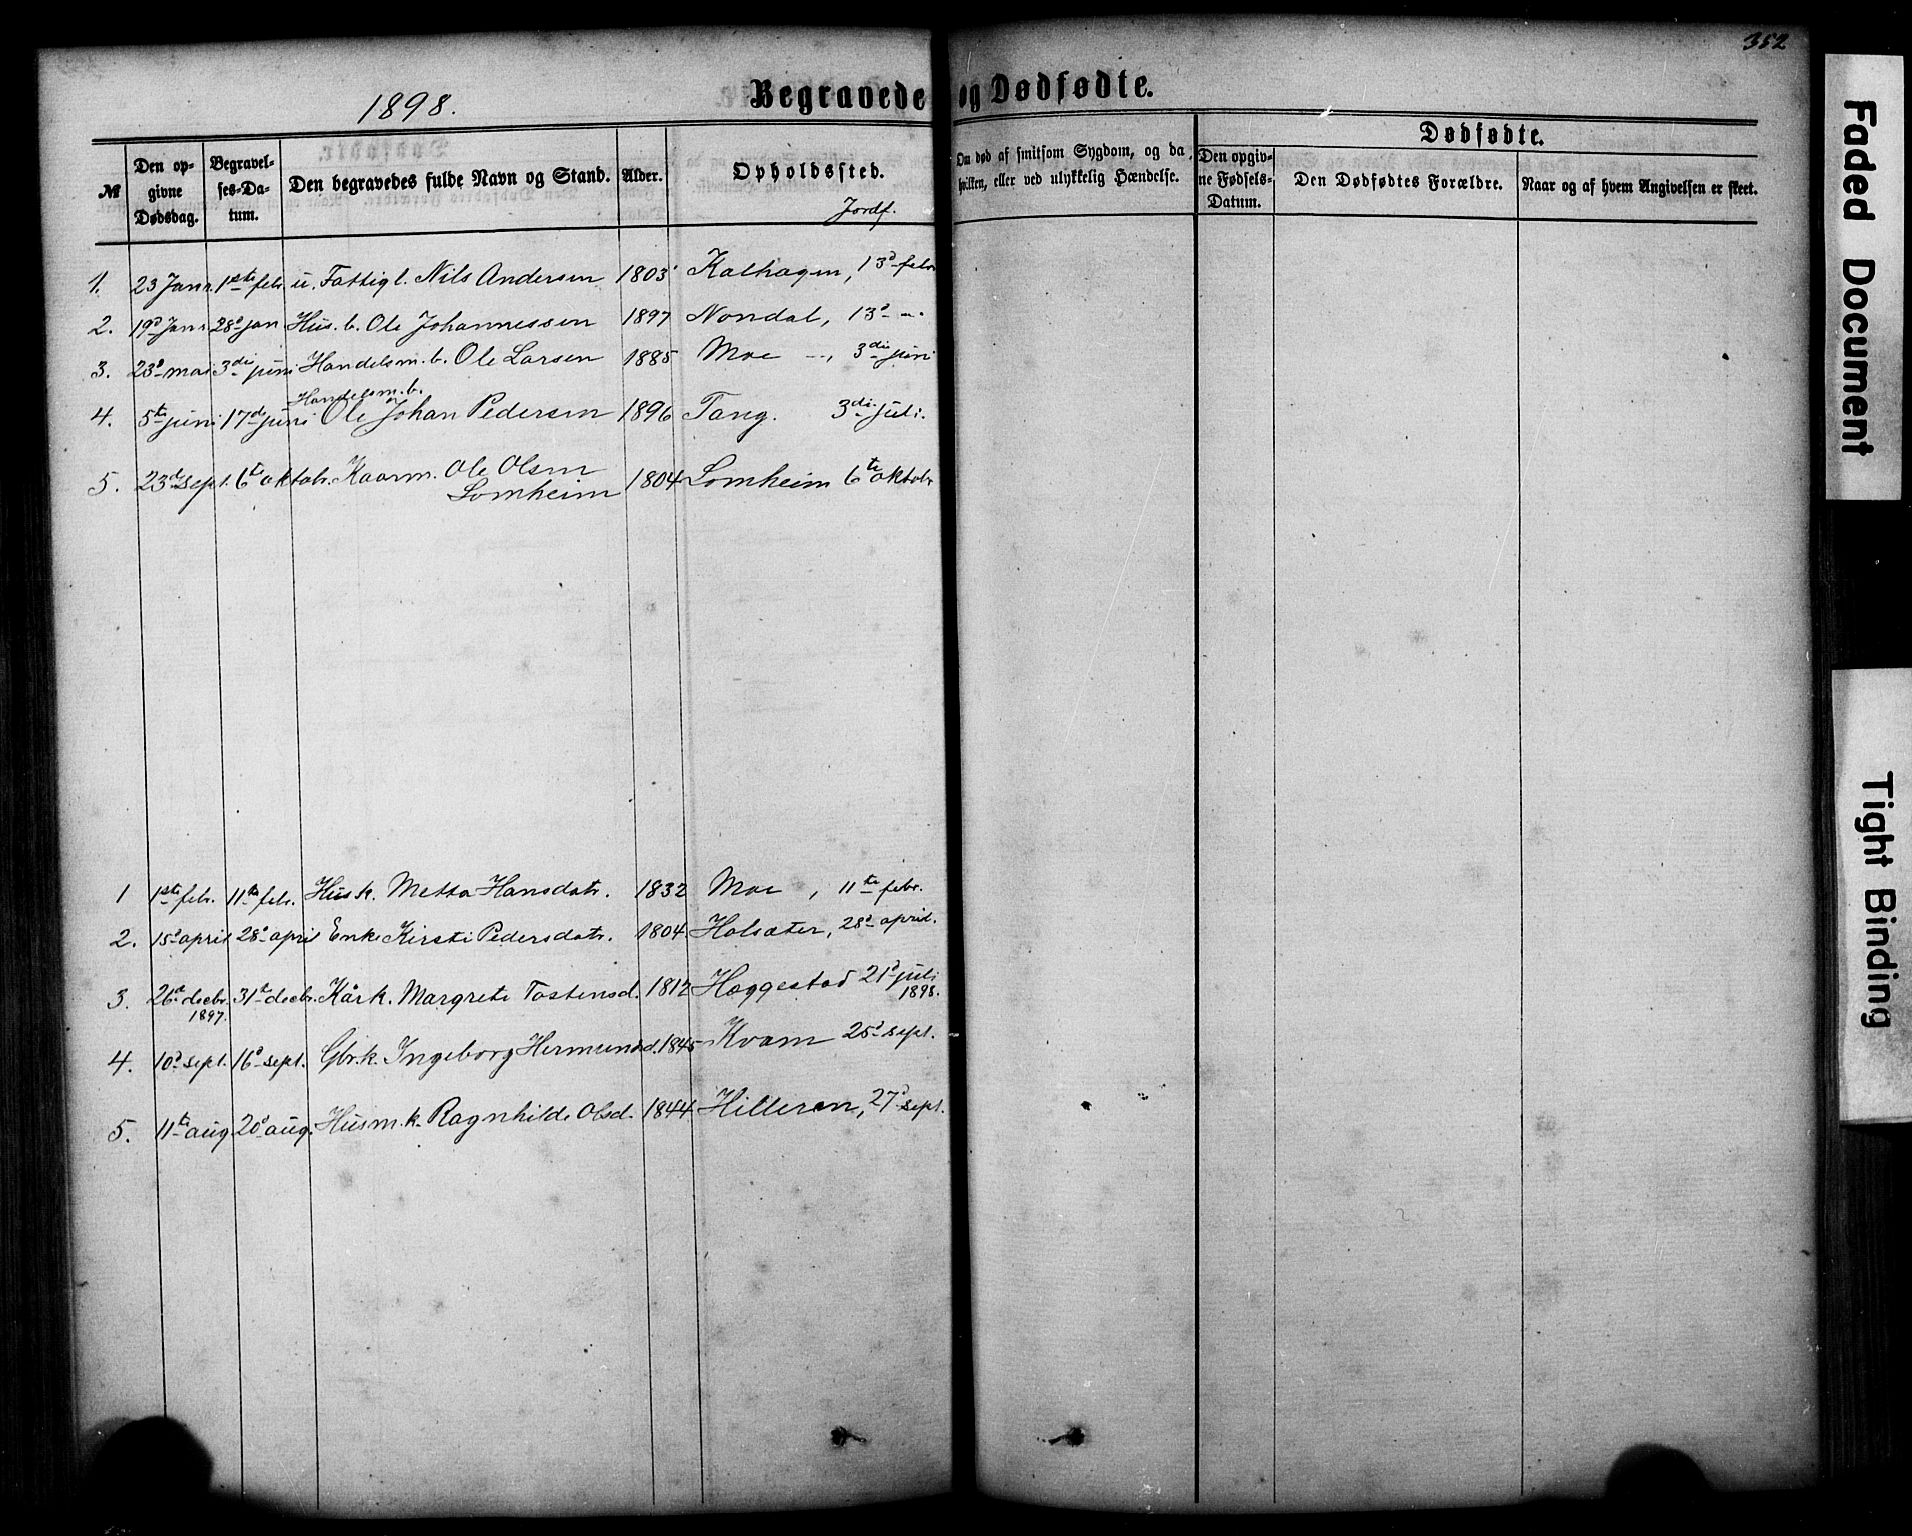 352
1898.
Begravede og Dødfødte.
№
Den op-
givne
Dødsdag.
Begravel-
ses-Da-
tum.
Den begravedes fulde Navn og Stand.
Alder.
Opholdssted.
Jordf.
Om død af smitsom Sygdom, og da
hvilken, eller ved ulykkelig Hændelse.
Dødfødte.
Den opgiv-
ne Fødsels-
Datum.
Den Dødfødtes Forældre.
Naar og af hvem Angivelsen er skeet.
1. 23 Janr. 1ste febr. u. Fattigl. Nils Andersen 1803 Kalhagen, 13d febr
2. 19d Janr 28d jan Hus. b. Ole Johannessen 1897 Nondal, 13d -"-
3. 23d mai 3die juni Handelsm. b. Ole Larsen 1885 Moe --, 3die juni
Handelsm. b.
4. 5te juni 17de juni Ole Johan Pedersen 1896 Tang. 3die juli.
5. 23d sept. 6te oktobr. Kaarm. Ole Olsen 1804 Lomheim 6te oktobr
Lomheim
1 1ste febr. 11te febr. Husk. Metta Hansdatr. 1832 Moe , 11te febr.
2. 15d april 28d april Enke Kirsti Pedersdatr. 1804 Halsæter, 28d april.
3. 26d decbr. 31te decbr. Kårk. Margrete Tostensd. 1812 Hæggestad 21d juli
1897. 1898.
4. 10d sept. 16d sept. Gbrk. Ingeborg Hermundsd. 1845 Kvam 25d sept.
5. 11te aug. 20d aug. Husm. k. Ragnhilde Olsd. 1844 Hilleren, 27d sept.
Faded Document
Tight Binding